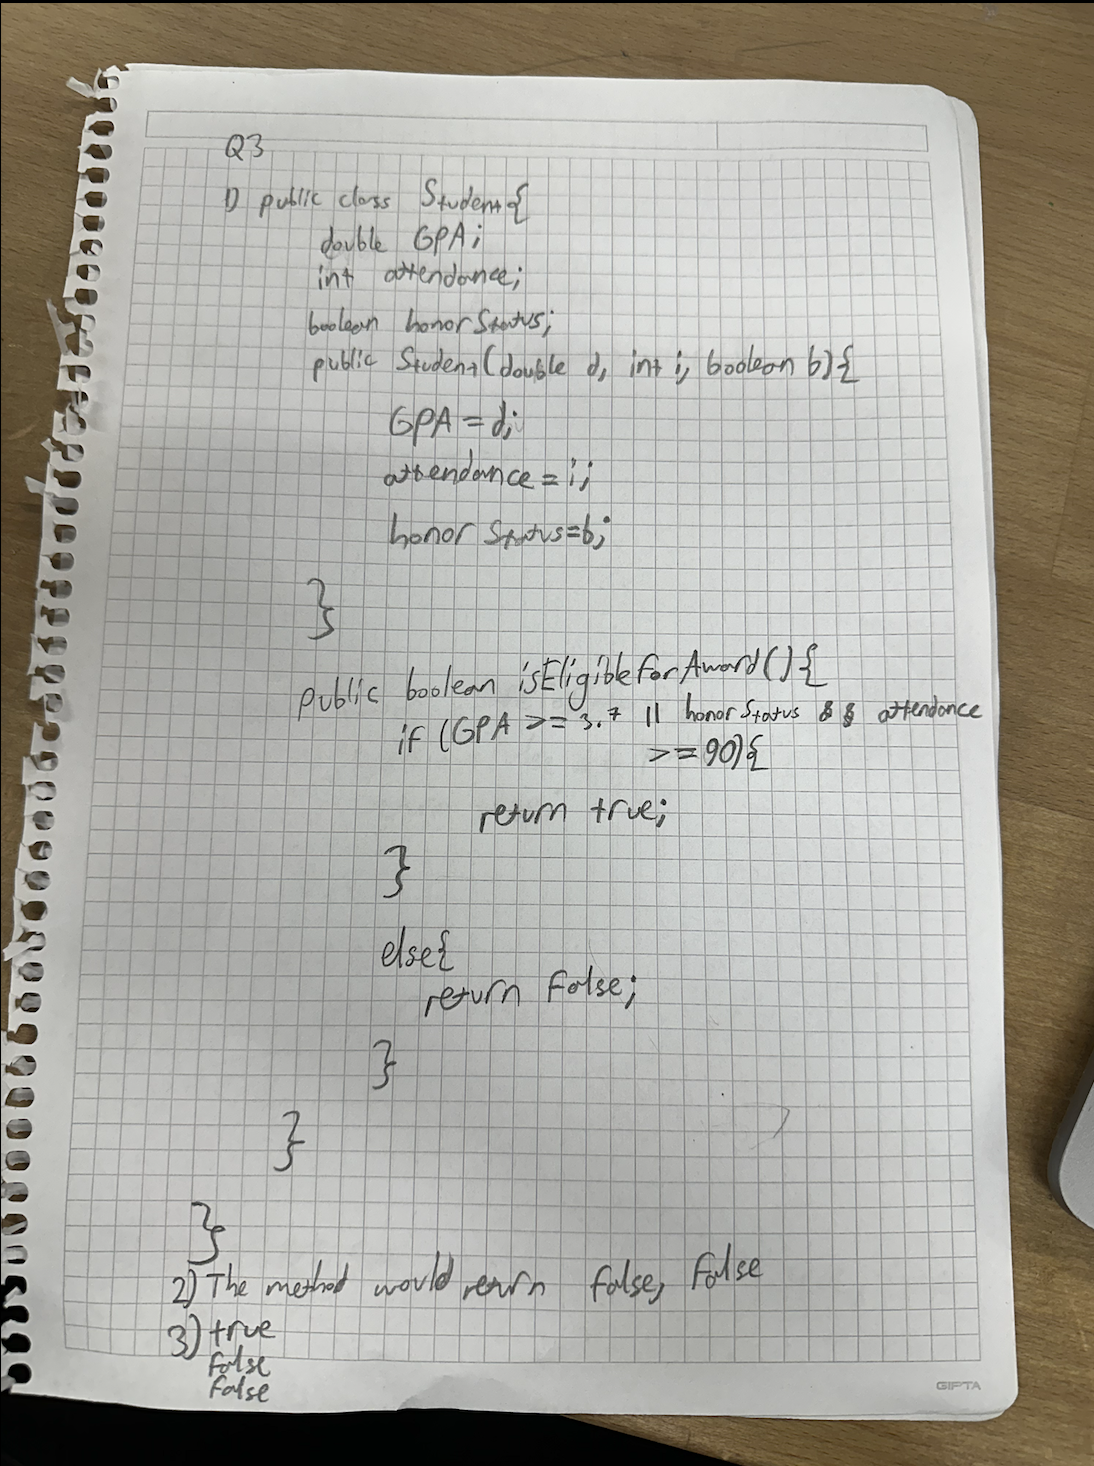 Q3
1) public class Student{
double GPA;
int attendance;
boolean honorStatus;
public Student(double d, int i, boolean b){
GPA = d;
attendance = i;
honor Status=b;
}
public boolean isEligibleForAward(){
if (GPA >= 3.7 || honorStatus && attendance
>=90){
return true;
}
else{
return False;
}
}
}
2) The method would return false, False
3) true
False
False
GIPTA